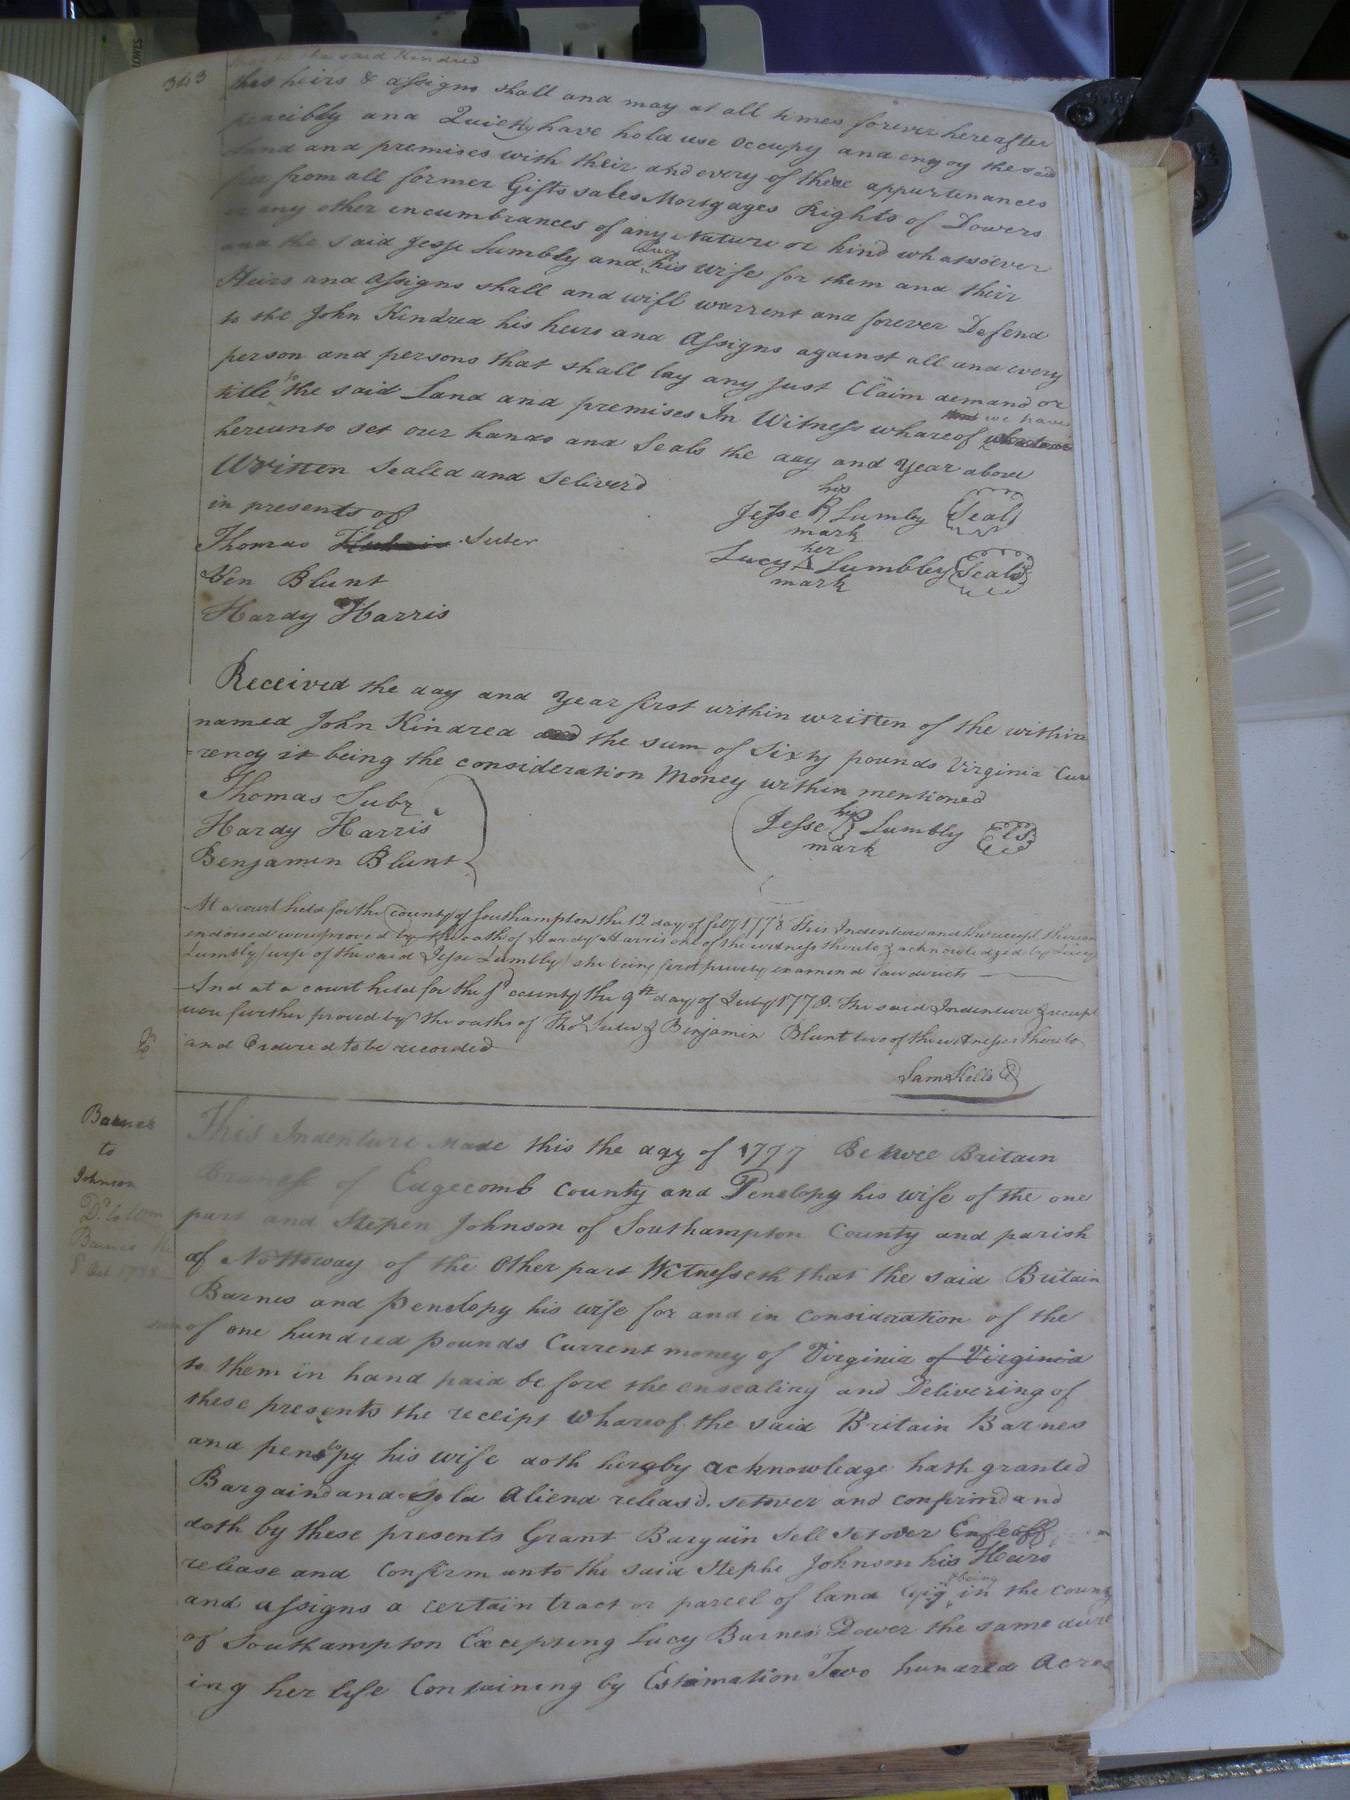 343
the said Kindred
his heirs & assigns shall and may at all times forever hereafter
peacibly and Quietly have hold use occupy and enjoy the said
Land and premises with their and every of there appurtenances
free from all former Gifts sales Mortgages Rights of Dowers
or any other incumbrances of any Nature or kind whatsoever
and the said Jesse Lumbly and Lucy his wife for them and their
Heirs and assigns shall and will warrent and forever Defend
to the John Kindred his heirs and Assigns against all and every
person and persons that shall lay any just Claim demand or
title to the said Land and premises In Witness whareof we have
hereunto set our hands and Seals the day and Year above
Written Sealed and Deliverd
in presents of
his
Jesse R Lumby Seal
mark
Thomas Suter
her
Lucy Lumbley Seal
mark
Ben Blunt
Hardy Harris
Received the day and Year first within written of the within
named John Kindred the sum of Sixty pounds Virginia Cur
=rency it being the consideration Money within mentioned
Thomas Subr
Hardy Harris
Benjamin Blunt
his
Jesse Lumbly LS
mark
At a court held for the county of Southampton the 12 day of feby 1778 This Indenture and the receipt thereon
endorsed were proved by the oath of Hardy Harris one of the witness thereto & acknowledged by Lucy
Lumbly wife of the said Jesse Lumbly she being first privily examined law directs
And at a court held for the sd county the 9th day of July 1778. The said Indenture & receipt
were further proved by the oaths of Thos Suter & Benjamin Blunt two of the witnesses thereto
and Ordered to be recorded
Sam Kello
Barnes
to
Johnson
Do to Wm
Barnes
8 Oct
This Indenture Made this the day of 1777 Betwee Britain
of Edgecomb County and Penelopy his wife of the one
part and Stepen Johnson of Southampton County and parish
of Nottoway of the Other part Witnesseth that the said Britain
Barnes and Penelopy his wife for and in Consideration of the
sum of one hundred pounds Current money of Virginia of Virginia
to them in hand paid before the ensealing and Delivering of
these presents the receipt Whareof the said Britain Barnes
and penelopy his wife doth hereby acknowledge hath granted
Bargaind and sold Aliend releasd. setover and confirmd and
doth by these presents Grant Bargain Sell Setover Enfeoff
release and Confirm unto the said Stephe Johnson his Heirs
and assigns a certain tract or parcel of land lyig & being in the County
of Southampton Excepting Lucy Barnes Dower the same dure
ing her life Containing by Estimation Two hundred Acres